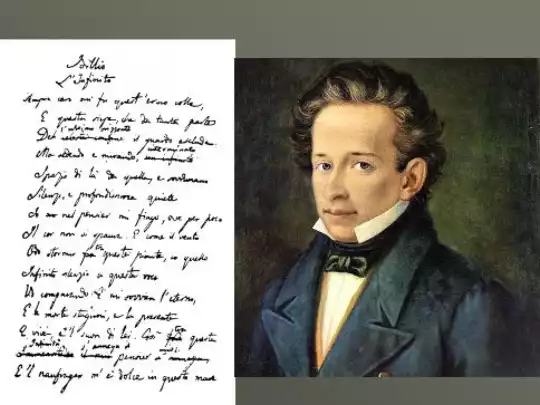 Idillio
L'Infinito
Sempre caro mi fu quest'ermo colle,
E questa siepe, che da tanta parte
l'ultimo orizzonte
Del celeste confine il guardo esclude.
interminato
Ma sedendo e mirando, un infinito
Spazio di là da quella, e sovrumani
Silenzi, e profondissima quiete
Io nel pensier mi fingo, ove per poco
Il cor non si spaura. E come il vento
tra
Odo stormir queste piante, io quello
Infinito silenzio a questa voce
Vo comparando: e mi sovvien l'eterno,
E le morte stagioni, e la presente
E viva, e 'l suon di lei. Così tra questa
Infinità s'annega il
pensier mio
E 'l naufragar m'è dolce in questo mare